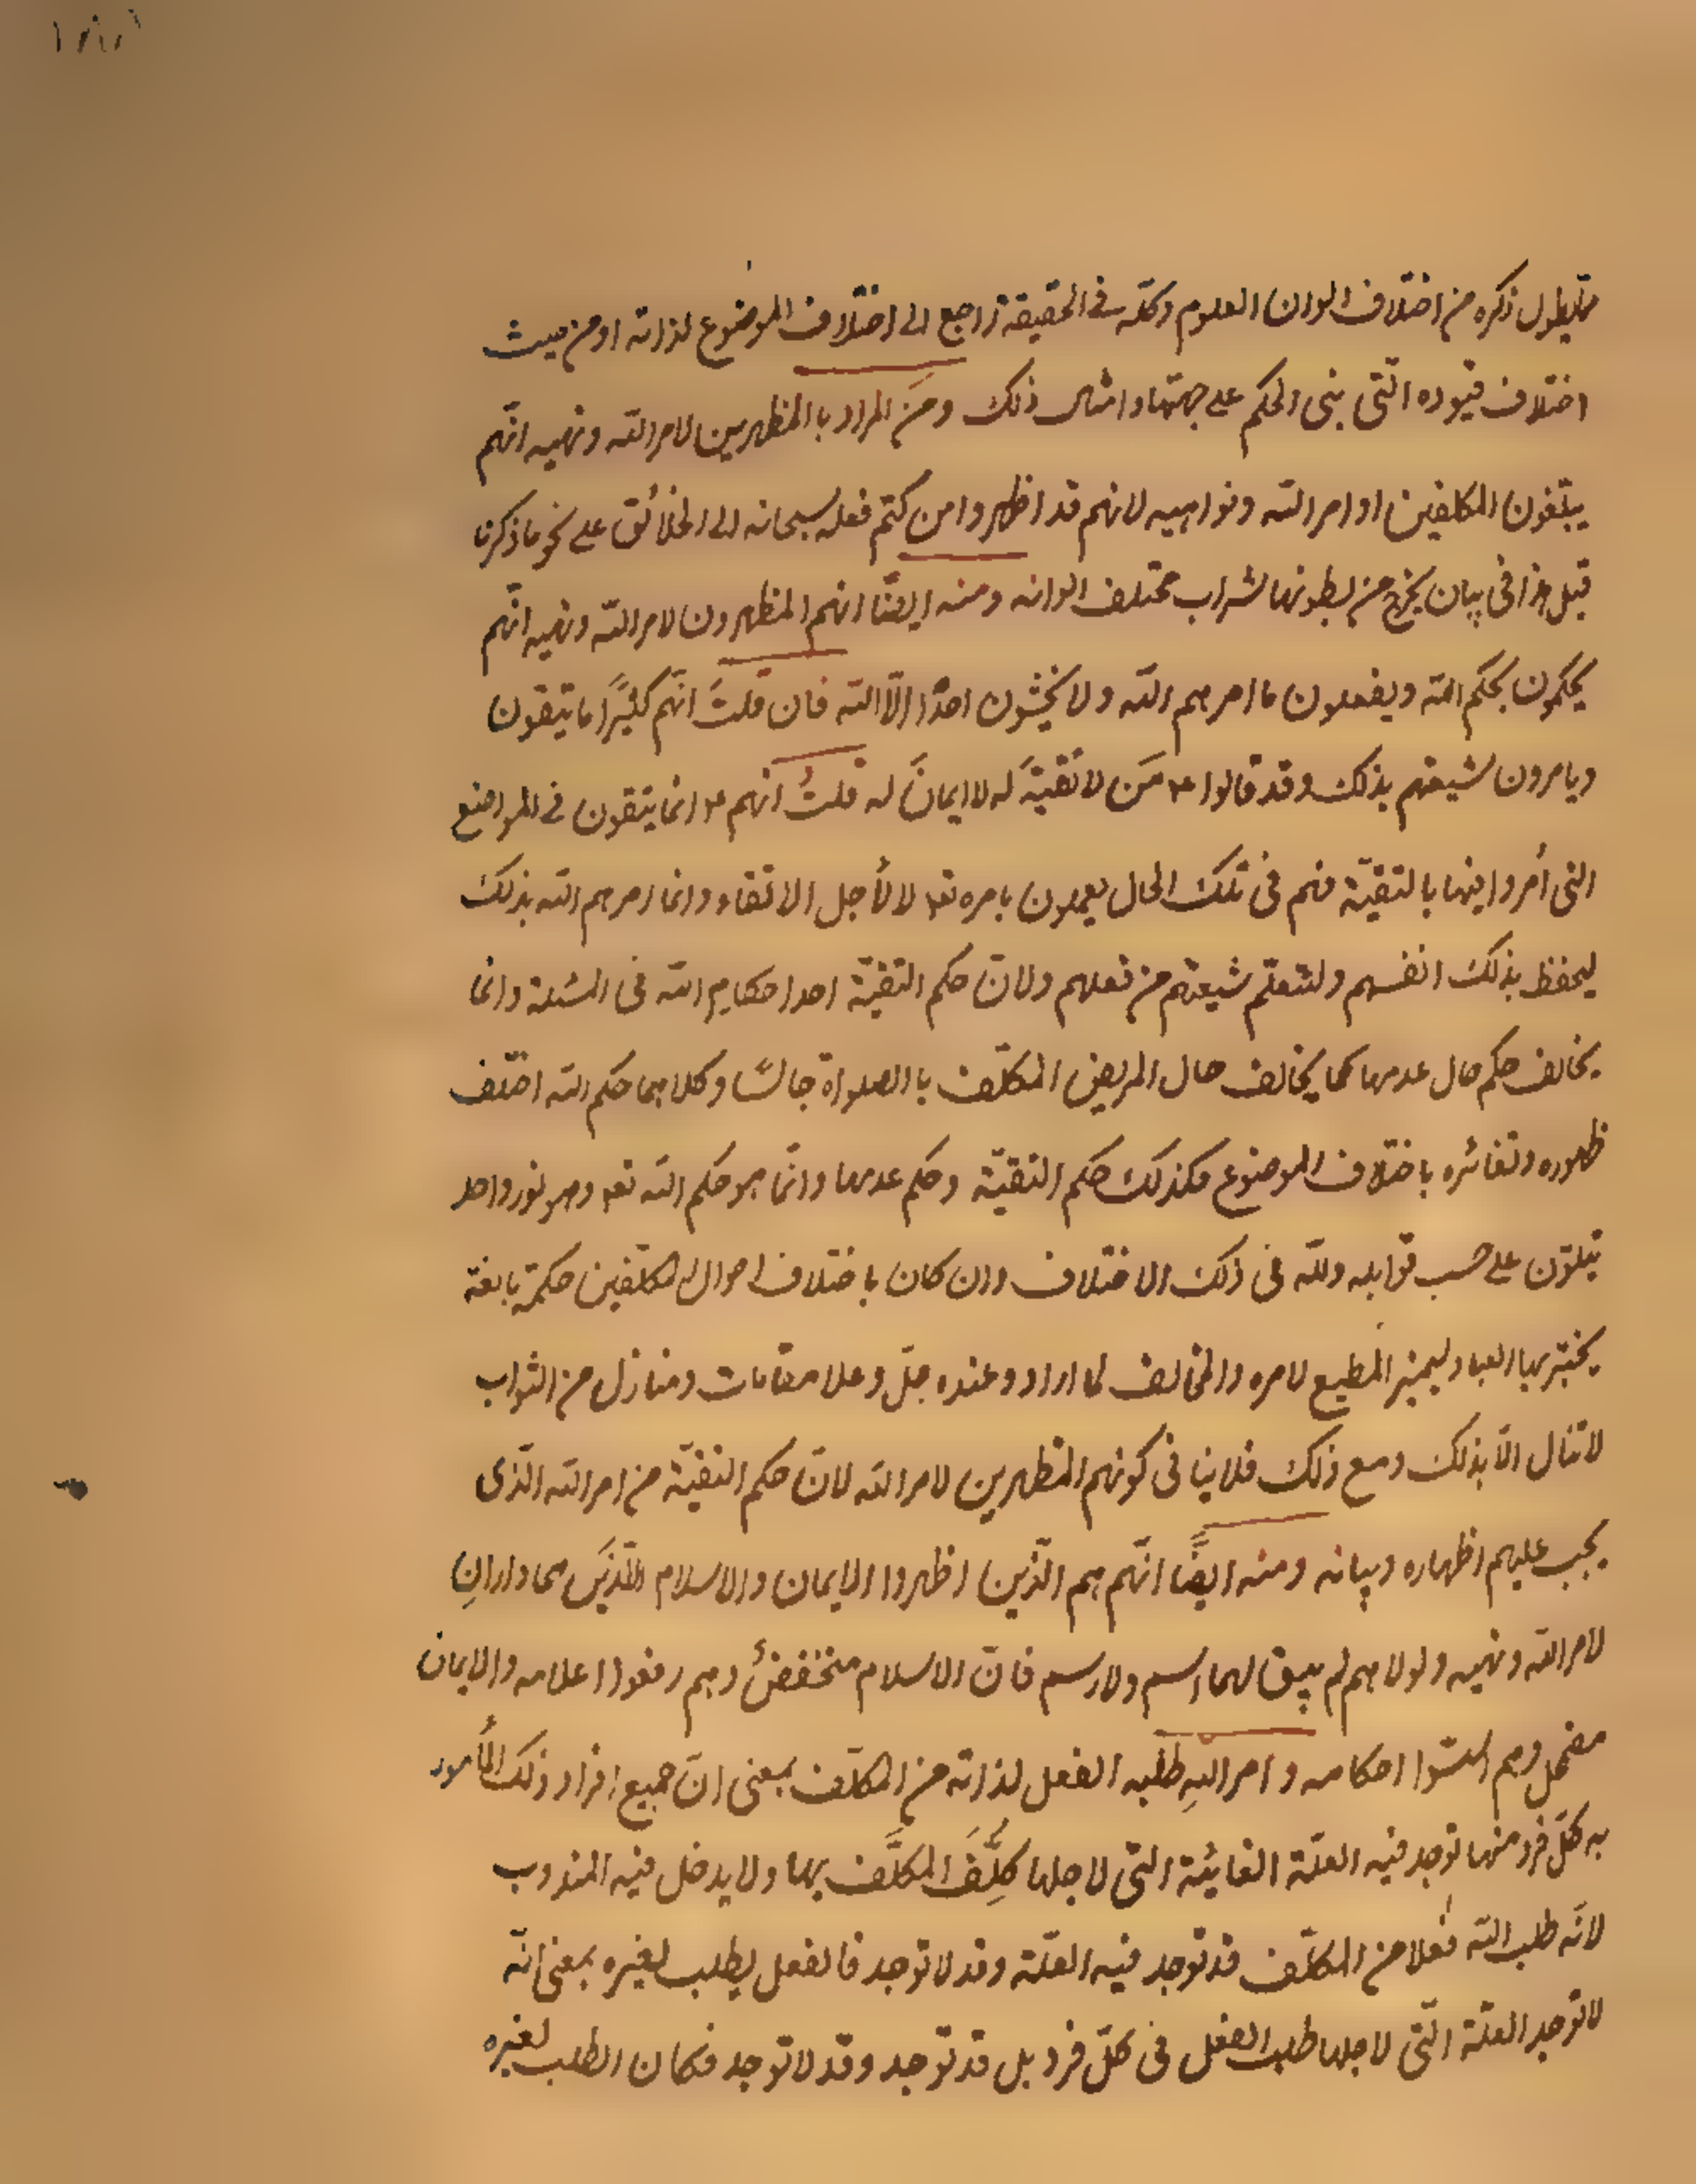 مما يطول ذكره من اختلاف الوان العلوم وكله في الحقيقة راجع الى اختلاف الموضوع لذاته او من حيث
اختلاف قيوده التى بنى الحكم على جهتها وامثال ذلك ومن المراد بالمظهرين لامر الله ونهيه انّهم
يبلّغون المكلفين اوامر الله ونواهيه لانهم قد اظهروا من كتم فعله سبحانه الى الخلائق على نحو ما ذكرنا
قبل هذا فى بيان يخرج من بطونها شراب مختلف الوانه ومنه ايضًا انهم المظهرون لامر الله ونهيه انّهم
يحكمون بحكم الله ويفعلون ما امرهم الله ولا يخشون احدًا الّا الله فان قلتَ انّهم كثيرًا ما يتقون
ويامرون شيعتهم بذلك وقد قالوا ع مَن لا تقيّةَ له لا ايمانَ له قلتُ انهم ع انما يتقون في المواضع
التى أُمروا فيها بالتقيّة فهم فى تلك الحال يعملون بامره تع لا لأجل الاتقاء وانما امرهم الله بذلك
ليحفظ بذلك انفسهم ولتتعلّم شيعتهم من فعلهم ولانّ حكم التقيّة احد احكام الله فى المسئلة وانما
يخالف حكم حال عدمها كما يخالف حال المريض المكلّف بالصلواة جالسًا وكلاهما حكم الله اختلف
ظهوره وتغائره باختلاف الموضوع فكذلك حكم التقيّة وحكم عدمها وانّما هو حكم الله تع وهو نور واحد
يتلوّن على حسب قوابله ولله فى ذلك الاختلاف وان كان باختلاف احوال المكلّفين حكمة بالغة
يختبر بها العباد ليميز المطيع لامره والمخالف لما اراد وعنده جلّ وعلا مقامات ومنازل من الثواب
لا تنال الّا بذلك ومع ذلك فلا ينافى كونهم المظهرين لامر الله لانّ حكم التقيّة من امر الله الّذى
يجب عليهم اظهاره وبيانه ومنه ايضًا انّهم هم الّذين اظهروا الايمان والاسلام اللّذين هما داران
لامر الله ونهيه ولولاهم لم يبق لهما اسم ولا رسم فانّ الاسلام منخفضٌ وهم رفعوا اعلامه والايمان
مضمحل وهم احكامه وامر اللهِ طلبه الفعل لذاته من المكلّف بمعنى انّ جميع افراد ذلك المأمور
به كلّ فرد منها توجد فيه العلّة الغائيّة التى لاجلها كُلِّفَ المكلَّف بها ولا يدخل فيه المندوب
لانّه طلب الله فعلا من المكلّف قد توجد فيه العلّة وقد لا توجد فالفعل يطلب لغيره بمعنى انّه
لا توجد العلّة الّتى لاجلها طلب الفعل فى كلّ فرد بل قد توجد وقد لا توجد فكان الطلب لغيره